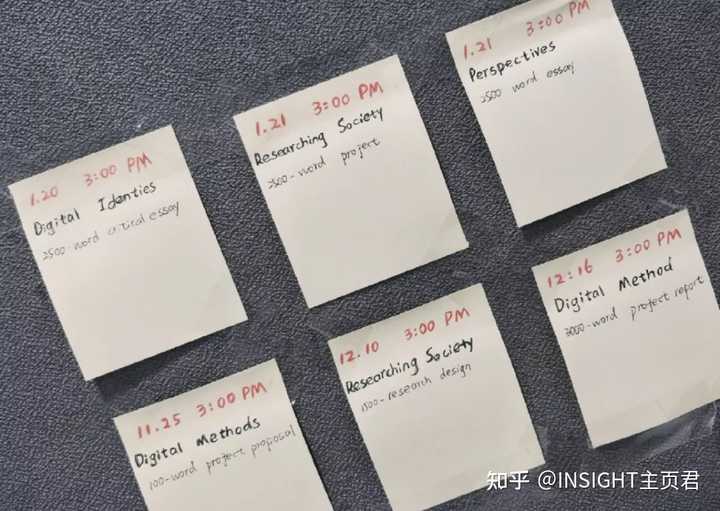 1.20 3:00 PM
Digital Identies
2500-word critical essay
1.21 3:00 PM
Researching Society
2500-word project
1.21 3:00 PM
Perspectives
2500 word essay
11.25 3:00 PM
Digital Methods
100-word project proposal
12.10 3:00 PM
Researching Society
1500-research design
12:16 3:00 PM
Digital Method
3000-word project report
知乎 @INSIGHT主页君